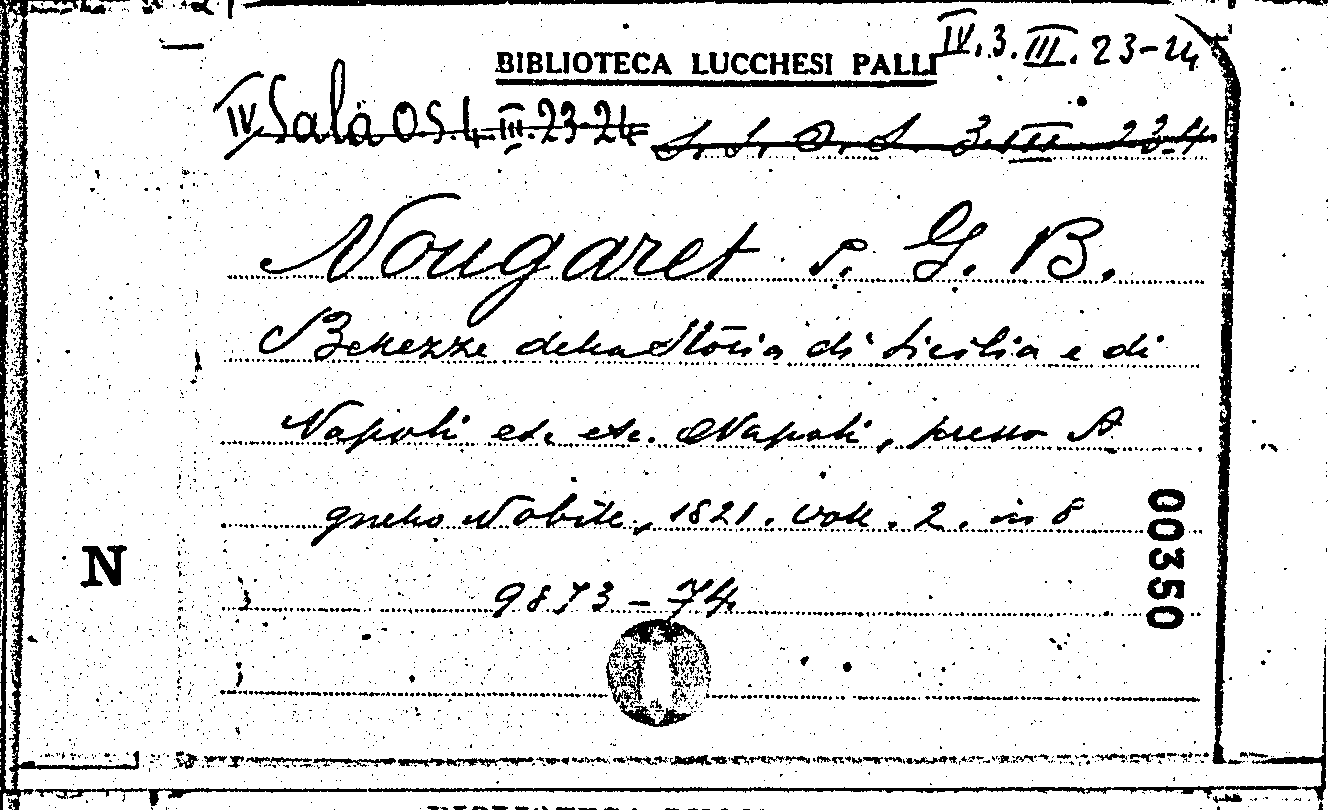 BIBLIOTECA LUCCHESI PALLI
IV.3.III.23-24
IV Sala OS.4.III.23-24 S. S. O. S. 3.III. 23-4
Nougaret P. G. B.
Bellezze della Storia di Sicilia e di
Napoli ec. ec. Napoli, presso A
gnello Nobile, 1821. voll. 2. in 8
9873-74
N
00350